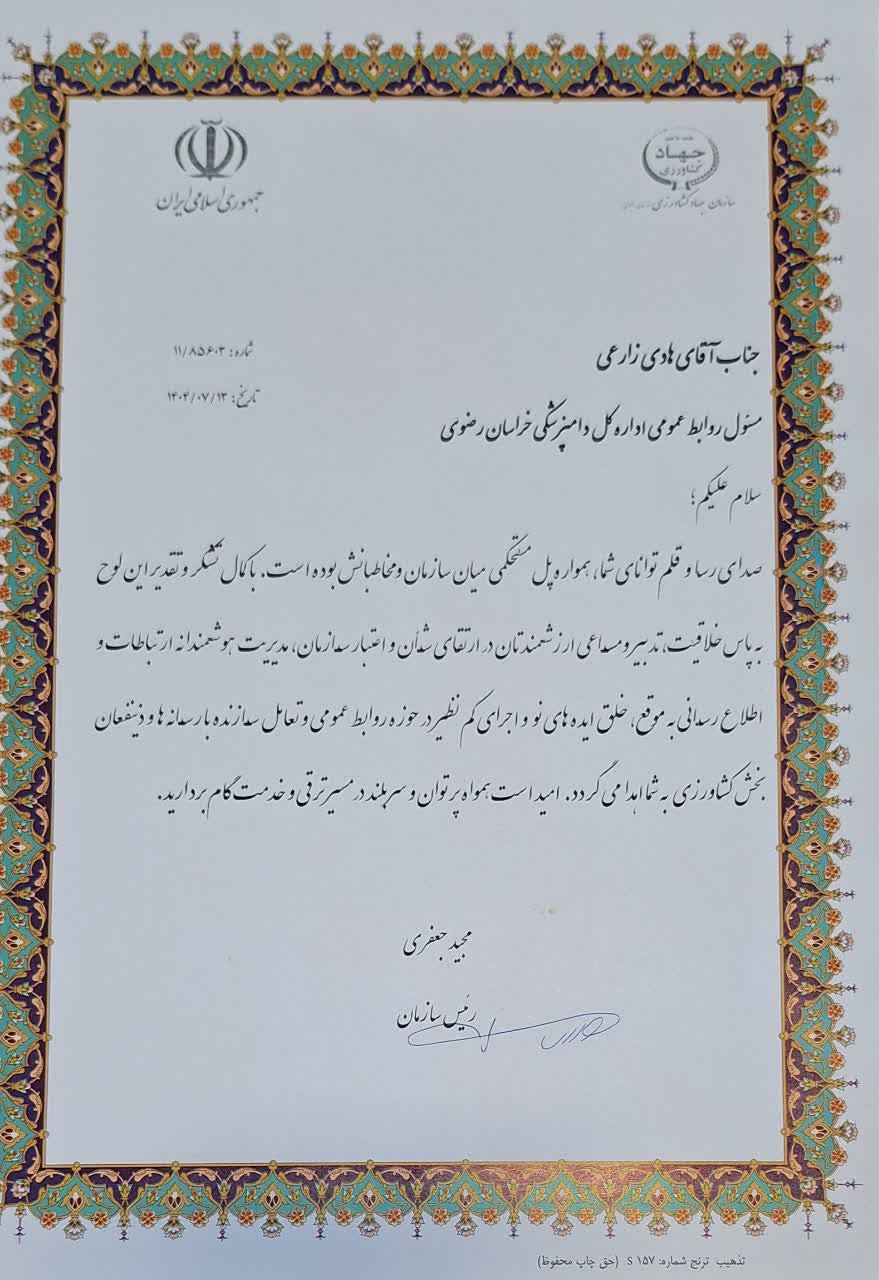 جمهوری اسلامی ایران
جهاد
کشاورزی
سازمان جهاد کشاورزی
شماره: ۱۱/۸۵۶۰۳
تاریخ: ۱۴۰۴/۰۷/۱۳
جناب آقای هادی زارعی
مسئول روابط عمومی اداره کل دامپزشکی خراسان رضوی
سلام علیکم؛
صدای رسا و قلم توانای شما، همواره پل مستحکمی میان سازمان و مخاطبانش بوده است. با کمال تشکر و تقدیر این لوح
به پاس خلاقیت، تدبیر و مساعی ارزشمندتان در ارتقای شأن و اعتبار سازمان، مدیریت هوشمندانه ارتباطات و
اطلاع رسانی به موقع، خلق ایده های نو و اجرای کم نظیر در حوزه روابط عمومی و تعامل سازنده با رسانه ها و ذینفعان
بخش کشاورزی به شما اهدا می گردد. امید است همواه پرتوان و سربلند در مسیر ترقی و خدمت گام بردارید.
مجید جعفری
رئیس سازمان
تذهیب ترنج شماره: S ۱۵۷ (حق چاپ محفوظ)